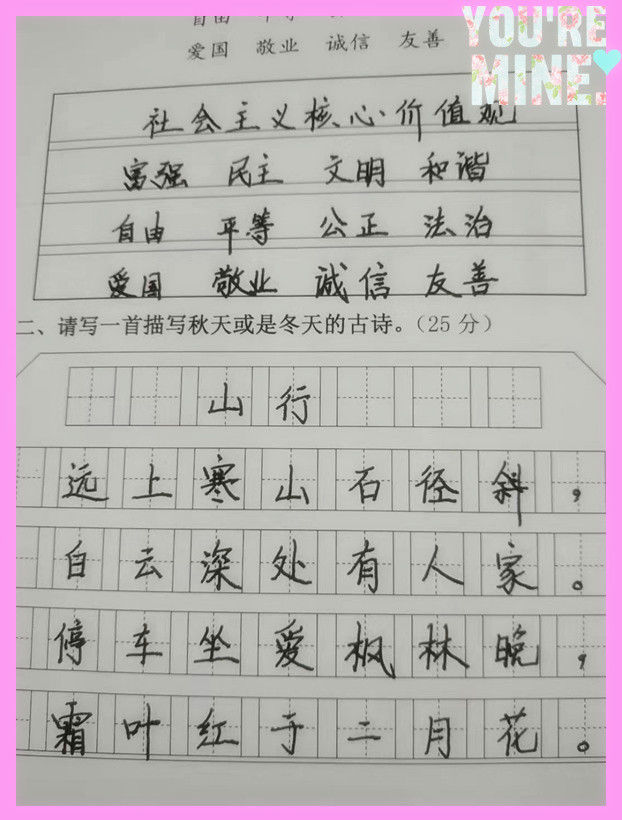 自由 平等
爱国 敬业 诚信 友善
YOU'RE
MINE.
社会主义核心价值观
富强 民主 文明 和谐
自由 平等 公正 法治
爱国 敬业 诚信 友善
二、请写一首描写秋天或是冬天的古诗。（25 分）
山行
远上寒山石径斜，
白云深处有人家。
停车坐爱枫林晚，
霜叶红于二月花。